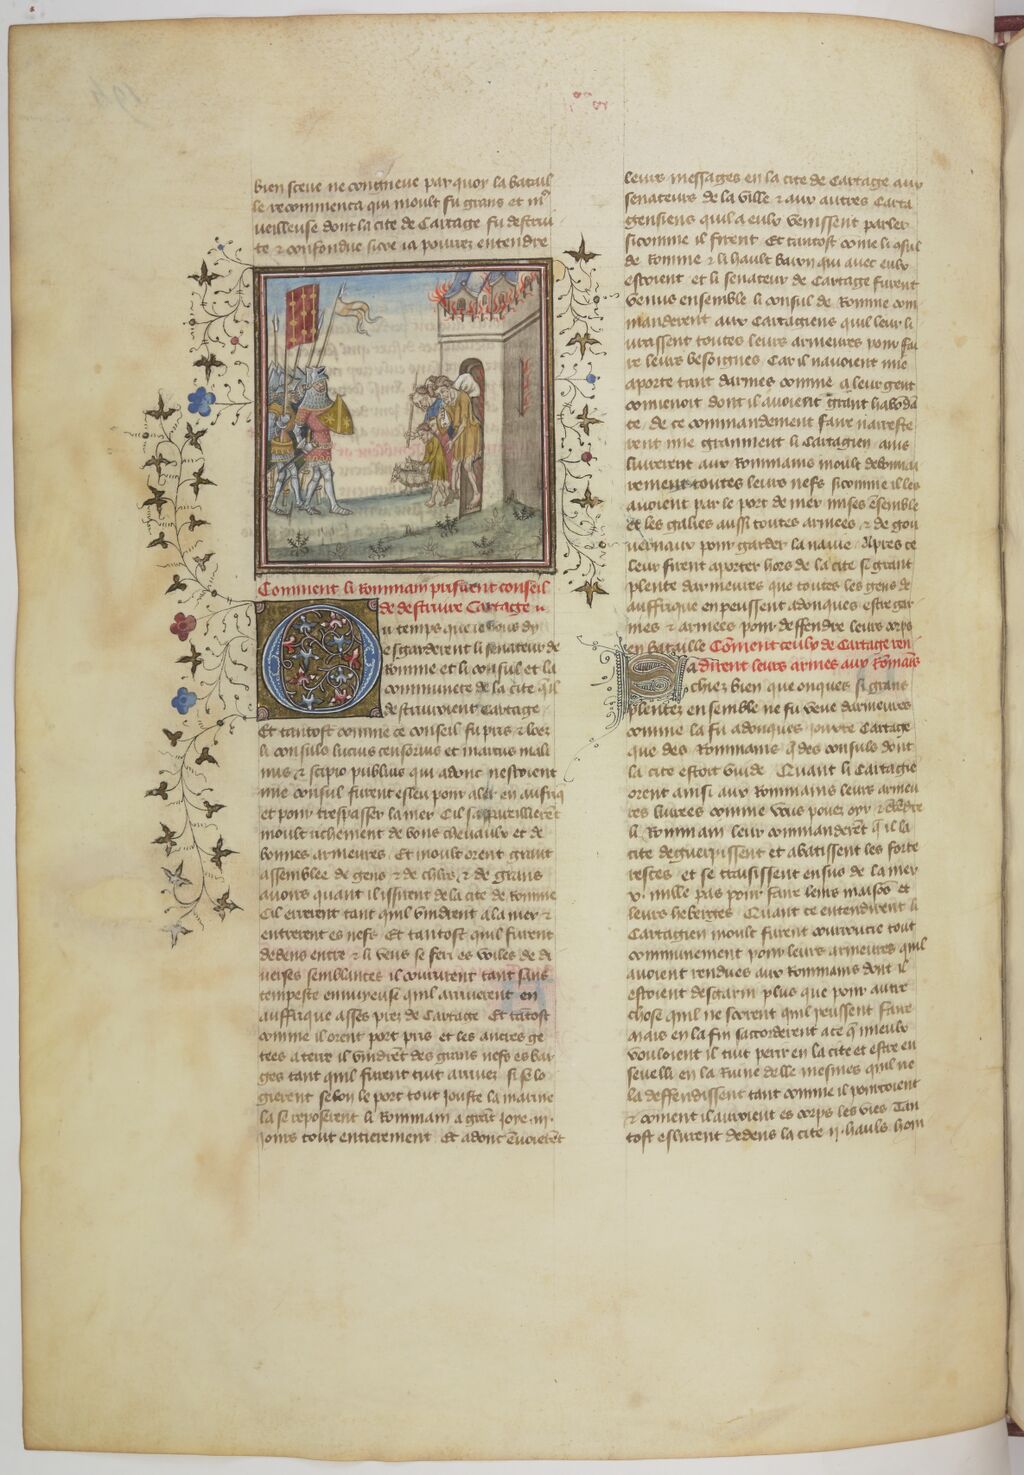 bien sceue ne congneue par quoy la batail
le recommenca qui moult fu grans et m
veilleuse dont la cite de Cartage fu destrui
te ⁊ confondue sicõe ia pourrez entendre
Comment li Rommain prisrent conseil
de destruire Cartage
u temps que ie vous dy
esgarderent li senateur de
Romme et li consul et la
communete de la cite qͥl
destruiroient Cartage
Et tantost comme ce conseil fu pris ⁊ loez
li consulo lucius censorius et marcus mali
nus ⁊ scipio publius qui adont nestoient
mie consul furent esleu pour aler en aufriq
et pour trespasser la mer Cil sappareillierẽt
moult richement de bons cheuaulx et de
bonnes armeures Et moult orent grant
assemblee de gens ⁊ de chlrs ⁊ de grans
auoirs quant il issirent de la cite de Romme
Cil errerent tant quil vindrent a la mer ⁊
entrerent es nefs Et tantost quil furent
dedens entre ⁊ li vens se feri es voiles de di
uerses semblances il coururent tant sans
tempeste ennuyeuse quil arriuerent en
auffrique asses pres de Cartage Et tãtost
comme il orent port pris et les ancres ge
tees a terre il vindrẽt des grans nefs es bar
ges tant quil furent tuit arriuez si se lo
gierent selon le port tout jouste la marine
la se reposerent li Rommain a grãt joye .iij.
jours tout entierement Et adont ẽuoierẽt
leurs messages en la cite de Cartage aux
senateurs de la ville ⁊ aux autres Carta
gensiens quil a eulx venissent parler
sicomme il firent Et tantost cõme li ɔsul
de Romme ⁊ li hault baron qui auec eulx
estoient et li senateur de Cartage furent
venus ensemble li consul de Romme com
manderent aux Cartagiens quil leur li
urassent toutes leurs armeures pour fai
re leurs besoignes Car il nauoient mie
aporte tant darmes comme a leur gent
conuenoit dont il auoient grant habõdã
ce . de ce commandement faire narreste
rent mie granment li Cartagien ains
liurerent aux Rommains moult debonnai
rement toutes leurs nefs sicomme il les
auoient par le port de mer mises ẽsemble
Et les galies aussi toutes armees ⁊ de gou
uernaux pour garder la nauie Apres ce
leur firent aporter hors de la cite si grant
plente darmeures que toutes les gens de
auffrique en peussent adonques estre gar
nies ⁊ armees pour deffendre leurs corps
en bataille Cõment ceulx de Cartage ren
dirent leurs armes aux Rõmains
achiez bien que onques si grans
plentez ensemble ne fu veue darmeures
comme la fu adonques
que des Rommains q̃ des consulo dont
la cite estoit vuide Quant li Cartagie
orent ainsi aux Rommains leurs armeu
res liurees comme vous pouez oyr ⁊
li Rommain leur commanderẽt q̃ il la
cite deguerpissent et abatissent les forte
resces et se traisissent ensus de la mer
x. mille pas pour faire leurs maisõs et
leurs heberges Quant ce entendirent li
Cartagien moult furent courroucie tout
communement pour leurs armeures quil
auoient rendues aux Rommains dont il
estoient desgarni plus que pour autre
chose quil ne sceurent quil peussent faire
Mais en la fin saccorderent a ce q̃ mieulx
vouloient il tuit perir en la cite et estre en
seueli en la Ruine delle mesmes quil ne
la deffendissent tant comme il pourroient
⁊ coment il auroient es corps les vies Tan
tost eslurent dedens la cite ij. hauls hom